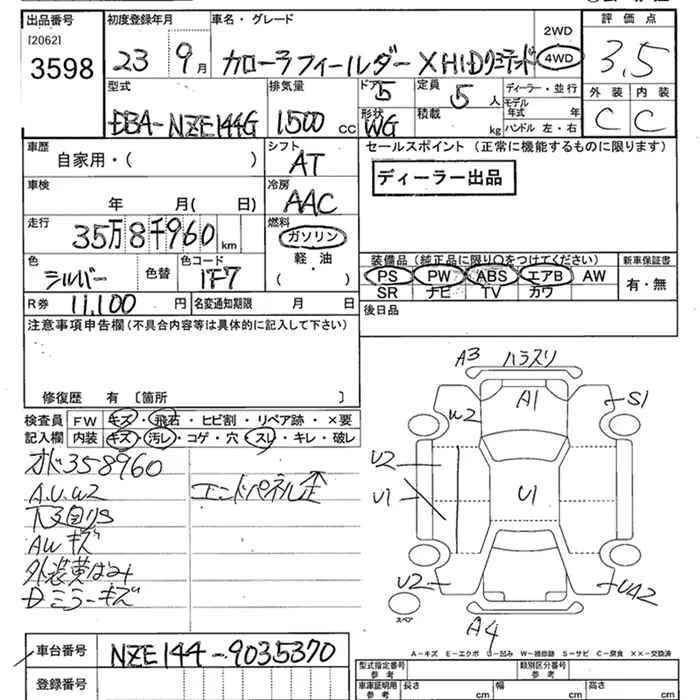 出品番号
[2062]
3598
初度登録年月
23 9月
車名・グレード
カローラフィールダー X HIDリミテッド
2WD
4WD
評価点
3.5
外装 内装
C C
型式
EBA-NZE144G
排気量
1500 cc
ドア 5
形状
WG
定員
5 人
積載
kg
ディーラー・並行
モデル
年式 年
ハンドル 左・右
車歴
自家用・( )
シフト
AT
セールスポイント (正常に機能するものに限ります)
ディーラー出品
車検
年 月( 日)
冷房
AAC
走行
35万8千960 km
燃料
ガソリン
軽・油
( )
色
シルバー
色替
色コード
1F7
装備品(純正品に限り○をつけてください)
PS PW ABS エアB AW
SR ナビ TV カワ
新車保証書
有・無
R券 11,100 円
名変通知期限 月 日
後日品
注意事項申告欄(不具合内容等は具体的に記入して下さい)
修復歴 有 〔箇所 〕
検査員
記入欄
FW キズ・飛石・ヒビ割・リペア跡・×要
内装 キズ・汚レ・コゲ・穴・スレ・キレ・破レ
オド358960
A.U.W2
下回りS
AWキズ
Dミラーキズ
エンドパネル歪
A3 ハラスリ
A1
S1
W2
U2
U1
U1
U2
UA2
A4
スペア
A-キズ E-エクボ U-凹み W-補修跡 S-サビ C-腐食 ××-交換済
車台番号
NZE144-9035370
登録番号
型式指定番号
参考
類別区分番号
参考
車庫証明用
参考
長さ cm
幅 cm
高さ cm